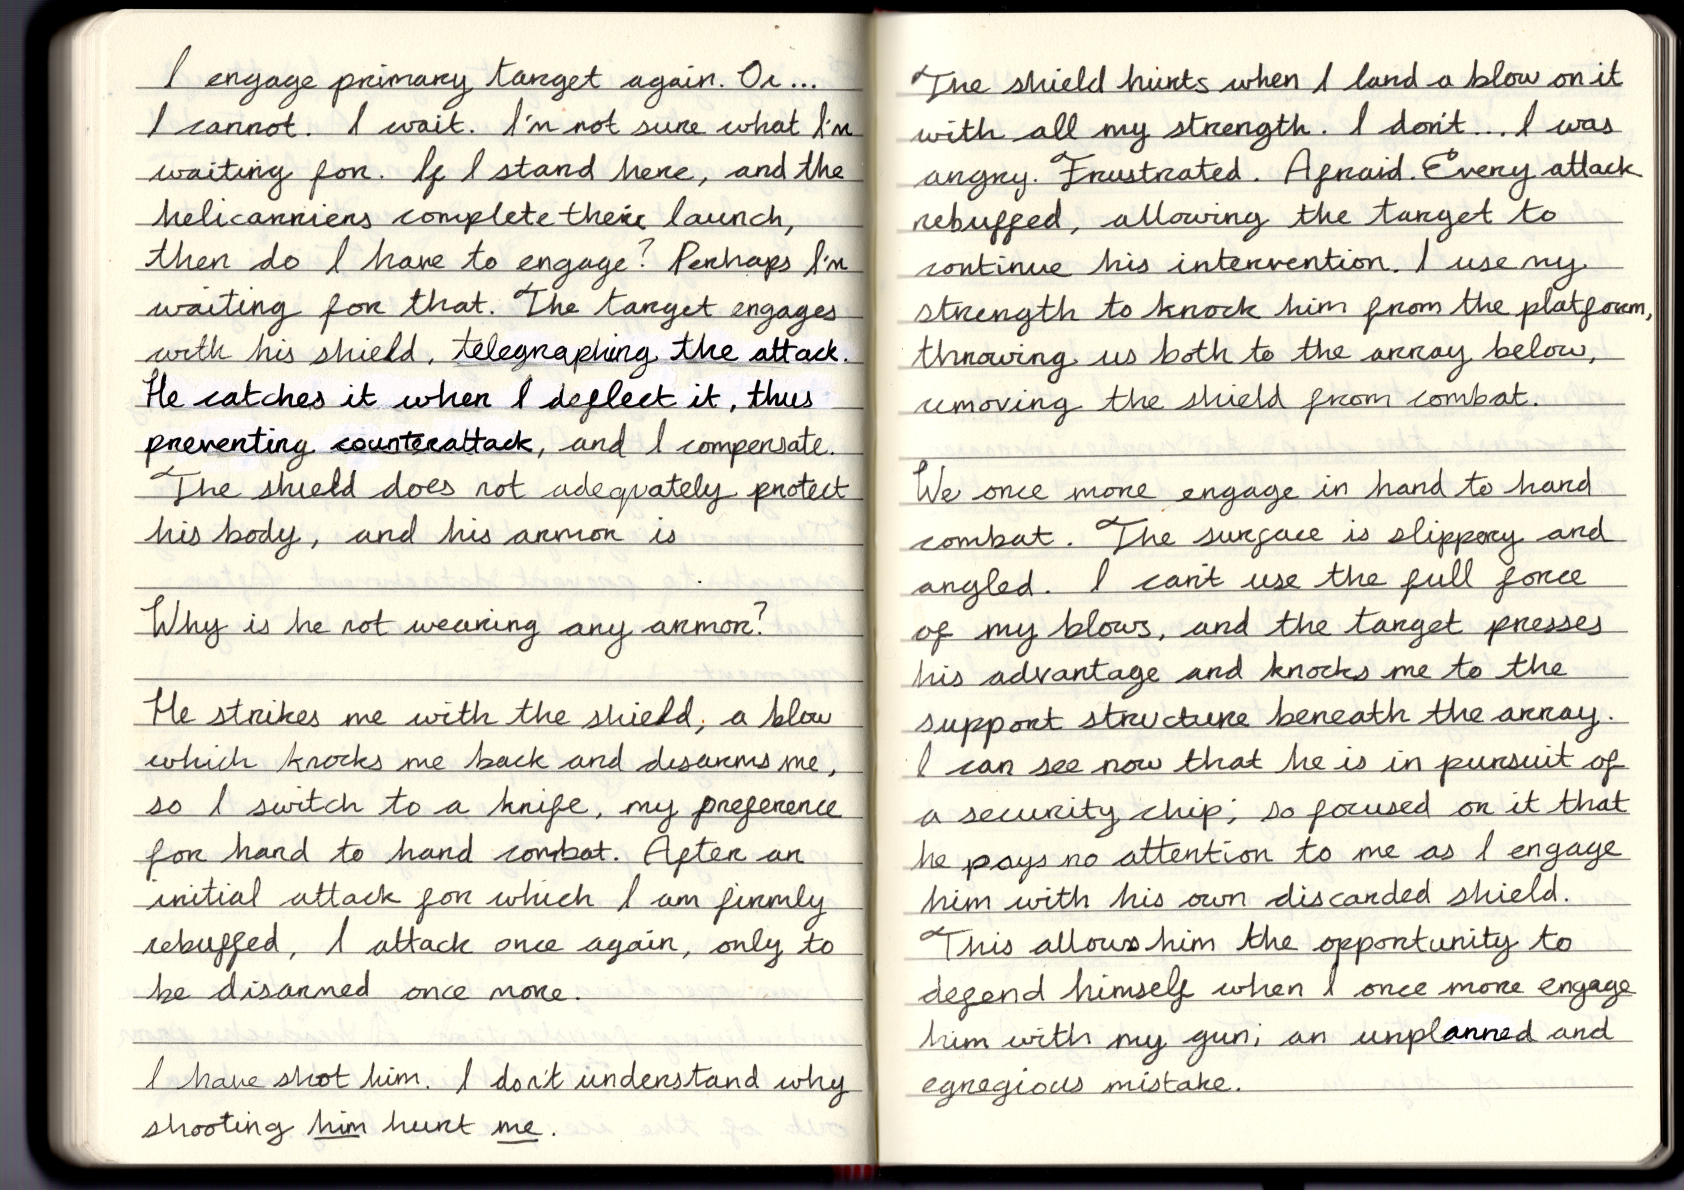 I engage primary target again. Or...
I cannot. I wait. I'm not sure what I'm
waiting for. If I stand here, and the
helicarriers complete their launch,
then do I have to engage? Perhaps I'm
waiting for that. The target engages
with his shield, telegraphing the attack.
He catches it when I deflect it, thus
preventing counterattack, and I compensate.
The shield does not adequately protect
his body, and his armor is
Why is he not wearing any armor?
He strikes me with the shield, a blow
which knocks me back and disarms me,
so I switch to a knife, my preference
for hand to hand combat. After an
initial attack for which I am firmly
rebuffed, I attack once again, only to
be disarmed once more.
I have shot him. I don't understand why
shooting him hurt me.
The shield hurts when I land a blow on it
with all my strength. I don't... I was
angry. Frustrated. Afraid. Every attack
rebuffed, allowing the target to
continue his intervention. I use my
strength to knock him from the platform,
throwing us both to the array below,
removing the shield from combat.
We once more engage in hand to hand
combat. The surface is slippery and
angled. I can't use the full force
of my blows, and the target presses
his advantage and knocks me to the
support structure beneath the array.
I can see now that he is in pursuit of
a security chip; so focused on it that
he pays no attention to me as I engage
him with his own discarded shield.
This allows him the opportunity to
defend himself when I once more engage
him with my gun; an unplanned and
egregious mistake.